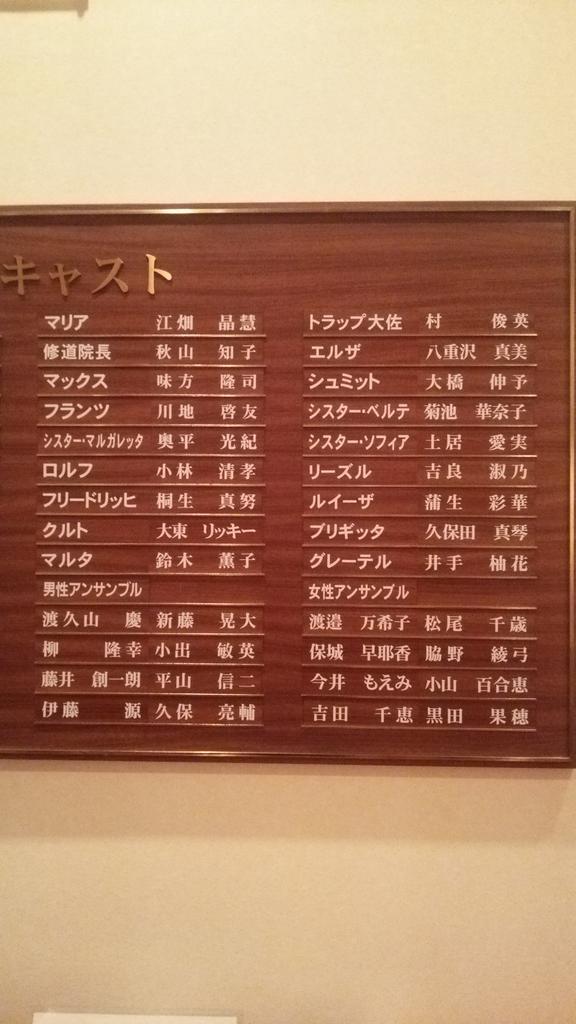 キャスト
マリア 江畑 晶慧
修道院長 秋山 知子
マックス 味方 隆司
フランツ 川地 啓友
シスター・マルガレッタ 奥平 光紀
ロルフ 小林 清孝
フリードリッヒ 桐生 真努
クルト 大東 リッキー
マルタ 鈴木 薫子
男性アンサンブル
渡久山 慶 新藤 晃大
柳 隆幸 小出 敏英
藤井 創一朗 平山 信二
伊藤 源 久保 亮輔
トラップ大佐 村 俊英
エルザ 八重沢 真美
シュミット 大橋 伸予
シスター・ベルテ 菊池 華奈子
シスター・ソフィア 土居 愛実
リーズル 吉良 淑乃
ルイーザ 蒲生 彩華
ブリギッタ 久保田 真琴
グレーテル 井手 柚花
女性アンサンブル
渡邉 万希子 松尾 千歳
保城 早耶香 脇野 綾弓
今井 もえみ 小山 百合恵
吉田 千恵 黒田 果穂